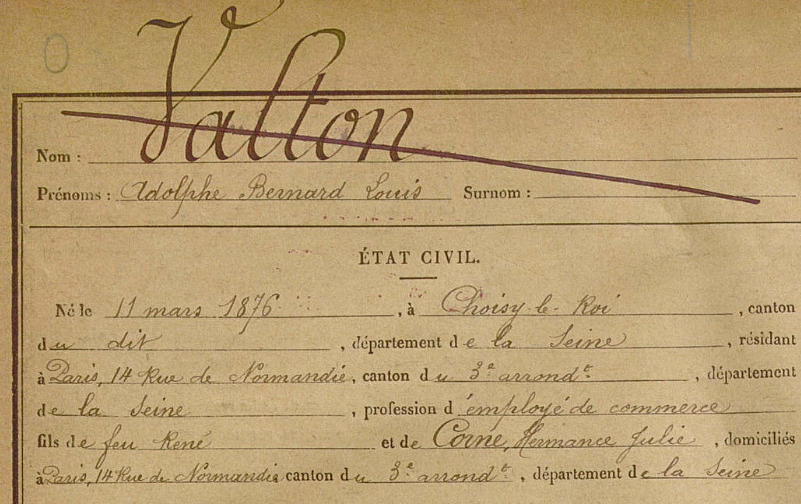 Valton
Nom :
Prénoms : Adolphe Bernard Louis Surnom :
ÉTAT CIVIL.
Né le 11 mars 1876, à Choisy-le-Roi, canton
du dit, département de la Seine, résidant
à Paris, 14 Rue de Normandie, canton du 3e arrondt., département
de la Seine, profession d'employé de commerce
fils de feu René et de Corne, Hermance Julie, domiciliés
à Paris, 14 Rue de Normandie canton du 3e arrondt., département de la Seine